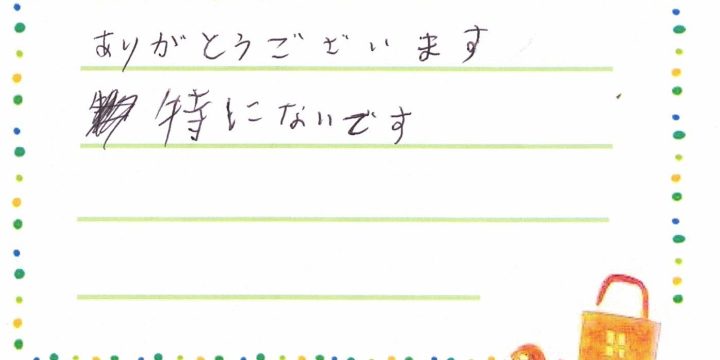 ありがとうございます
特にないです